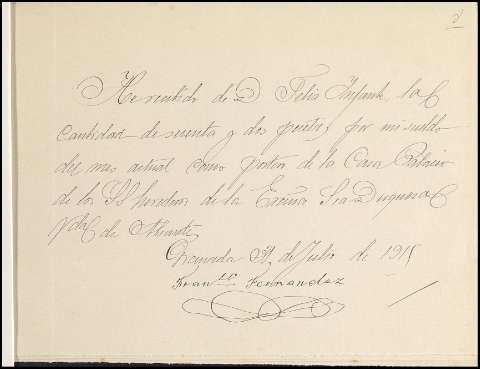 He recibido de D Felix Infante la
cantidad de sesenta y dos pesetas, por mi sueldo
del mes actual como portero de la Casa Palacio
de los SS herederos de la Excma Sra Duquesa
Vda de Abrantes
Granada 31 de Julio de 1915
Franco Fernandez